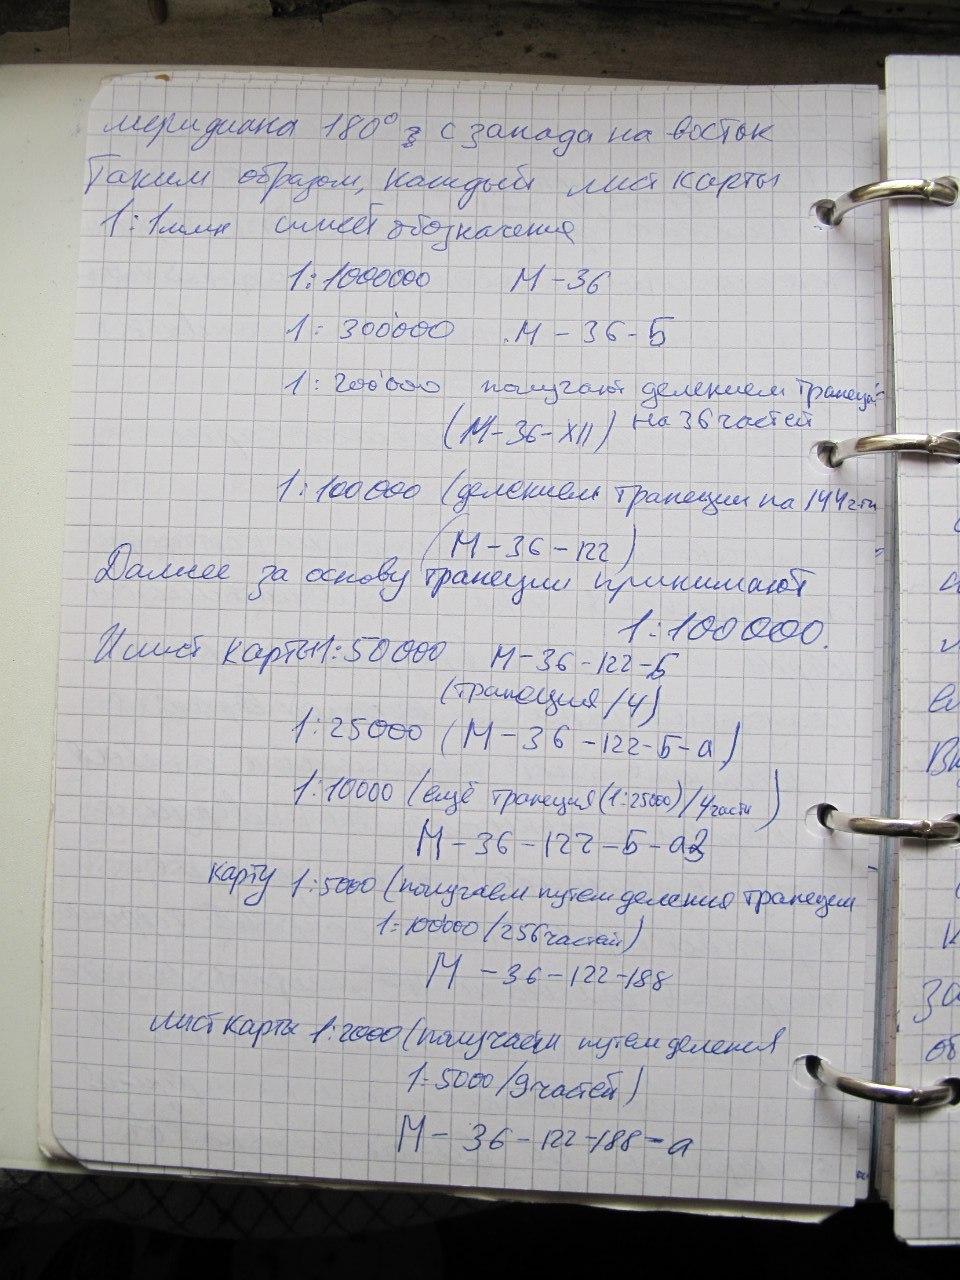 меридиана 180° с запада на восток
Таким образом, каждый лист карты
1:1млн имеет обозначения
1:1000000 М-36
1:300000 М-36-Б
1:200000 получают делением трапеций
(М-36-XII) на 36 частей
1:100000 (делением трапеции на 144
(М-36-122)
Далнее за основу трапеции принимают
1:100000.
И лист карты 1:50000 М-36-122-Б
(трапеция/4)
1:25000 (М-36-122-Б-а)
1:10000 (ещё трапеция(1:25000)/4части)
М-36-122-Б-а
карту 1:5000 (получаем путем деления трапеции
1:100000/256частей)
М-36-122-188
лист карты 1:2000 (получаем путем деления
1:5000/9частей)
М-36-122-188-а